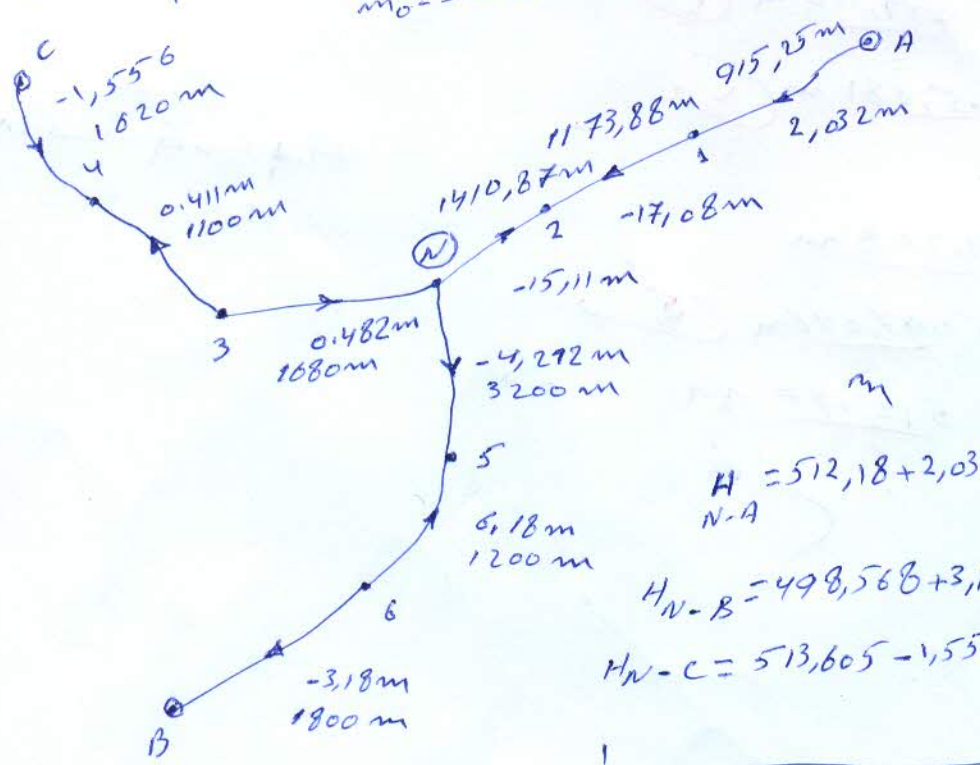 m₀=
C
-1,556
1020 m
4
0.411m
1100m
3
0.482m
1680m
N
915,25m
A
1173,88m
1
2,032m
1410,87m
2
-17,08m
-15,11m
-4,292m
3200m
5
6,18m
1200m
6
-3,18m
1800m
B
m
H N-A =512,18+2,03
H N-B =498,568+3,1
H N-C = 513,605-1,55
1